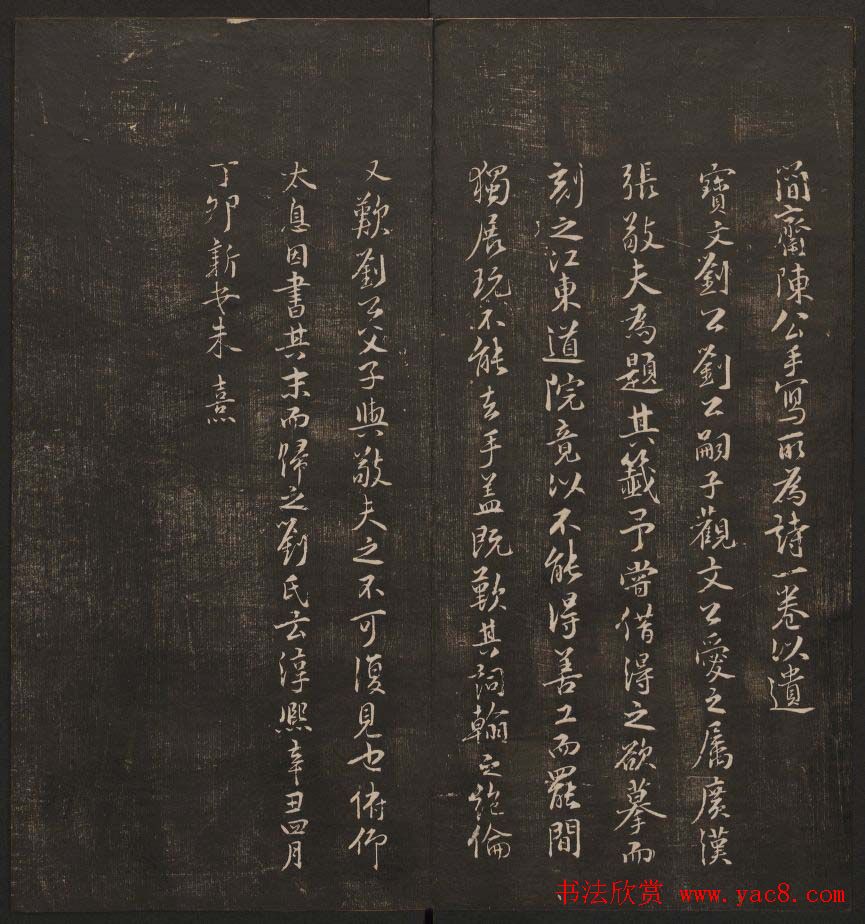 簡齋陳公手寫所為詩一卷以遺
寶文劉公劉公嗣子觀文公愛之属廣漢
張敬夫為題其籤予嘗借得之欲摹而
刻之江東道院竟以不能得善工而罷間
獨展玩不能去手盖既歎其詞翰之絶倫
又歎劉公父子與敬夫之不可復見也俯仰
太息因書其末而歸之劉氏云淳熙辛丑四月
丁卯新安朱熹
书法欣赏 www.yac8.com